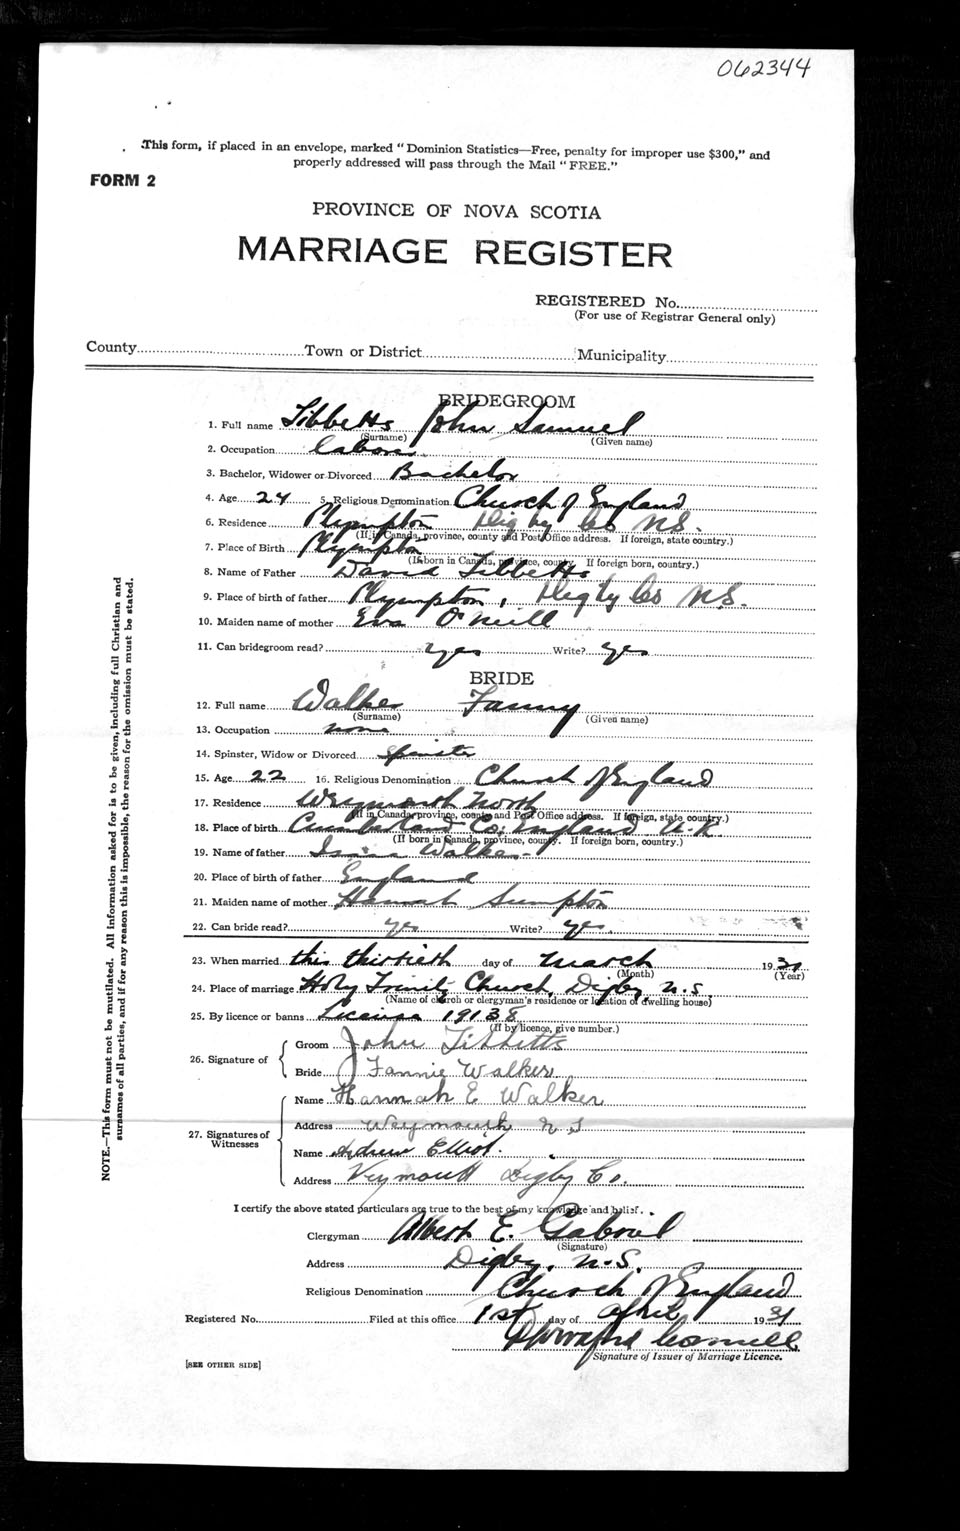 062344
This form, if placed in an envelope, marked "Dominion Statistics—Free, penalty for improper use $300," and
properly addressed will pass through the Mail "FREE."
FORM 2
PROVINCE OF NOVA SCOTIA
MARRIAGE REGISTER
REGISTERED No.
(For use of Registrar General only)
County Town or District Municipality
BRIDEGROOM
1. Full name Tibbetts John Samuel
(Surname) (Given name)
2. Occupation labor
3. Bachelor, Widower or Divorced Bachelor
4. Age 24 5. Religious Denomination Church of England
6. Residence Plympton Digby Co N.S.
(If in Canada, province, county and Post Office address. If foreign, state country.)
7. Place of Birth Plympton
(If born in Canada, province, county. If foreign born, country.)
8. Name of Father David Tibbetts
9. Place of birth of father Plympton, Digby Co N.S.
10. Maiden name of mother Eva O'Neill
11. Can bridegroom read? yes Write? yes
BRIDE
12. Full name Walker Fanny
(Surname) (Given name)
13. Occupation none
14. Spinster, Widow or Divorced Spinster
15. Age 22 16. Religious Denomination Church of England
17. Residence Weymouth North
(If in Canada province, county and Post Office address. If foreign, state country.)
18. Place of birth Cumberland Co. England U.K.
(If born in Canada, province, county. If foreign born, country.)
19. Name of father Walker
20. Place of birth of father England
21. Maiden name of mother Hannah Sumpton
22. Can bride read? yes Write? yes.
23. When married this thirtieth day of March 1931
(Month) (Year)
24. Place of marriage Holy Trinity Church, Digby N.S.
(Name of church or clergyman's residence or location of dwelling house)
25. By licence or banns License 19138
(If by licence, give number.)
26. Signature of
Groom John Tibbetts
Bride Fannie Walker
27. Signatures of Witnesses
Name Hannah E Walker
Address Weymouth N S
Name Andrew Elliot.
Address Weymouth Digby Co.
I certify the above stated particulars are true to the best of my knowledge and belief.
Clergyman Albert E. Gabriel
(Signature)
Address Digby, N.S.
Religious Denomination Church of England
Registered No. Filed at this office 1st day of April 1931
Signature of Issuer of Marriage Licence.
[SEE OTHER SIDE]
NOTE.—This form must not be mutilated. All information asked for is to be given, including full Christian and
surnames of all parties, and if for any reason this is impossible, the reason for the omission must be stated.